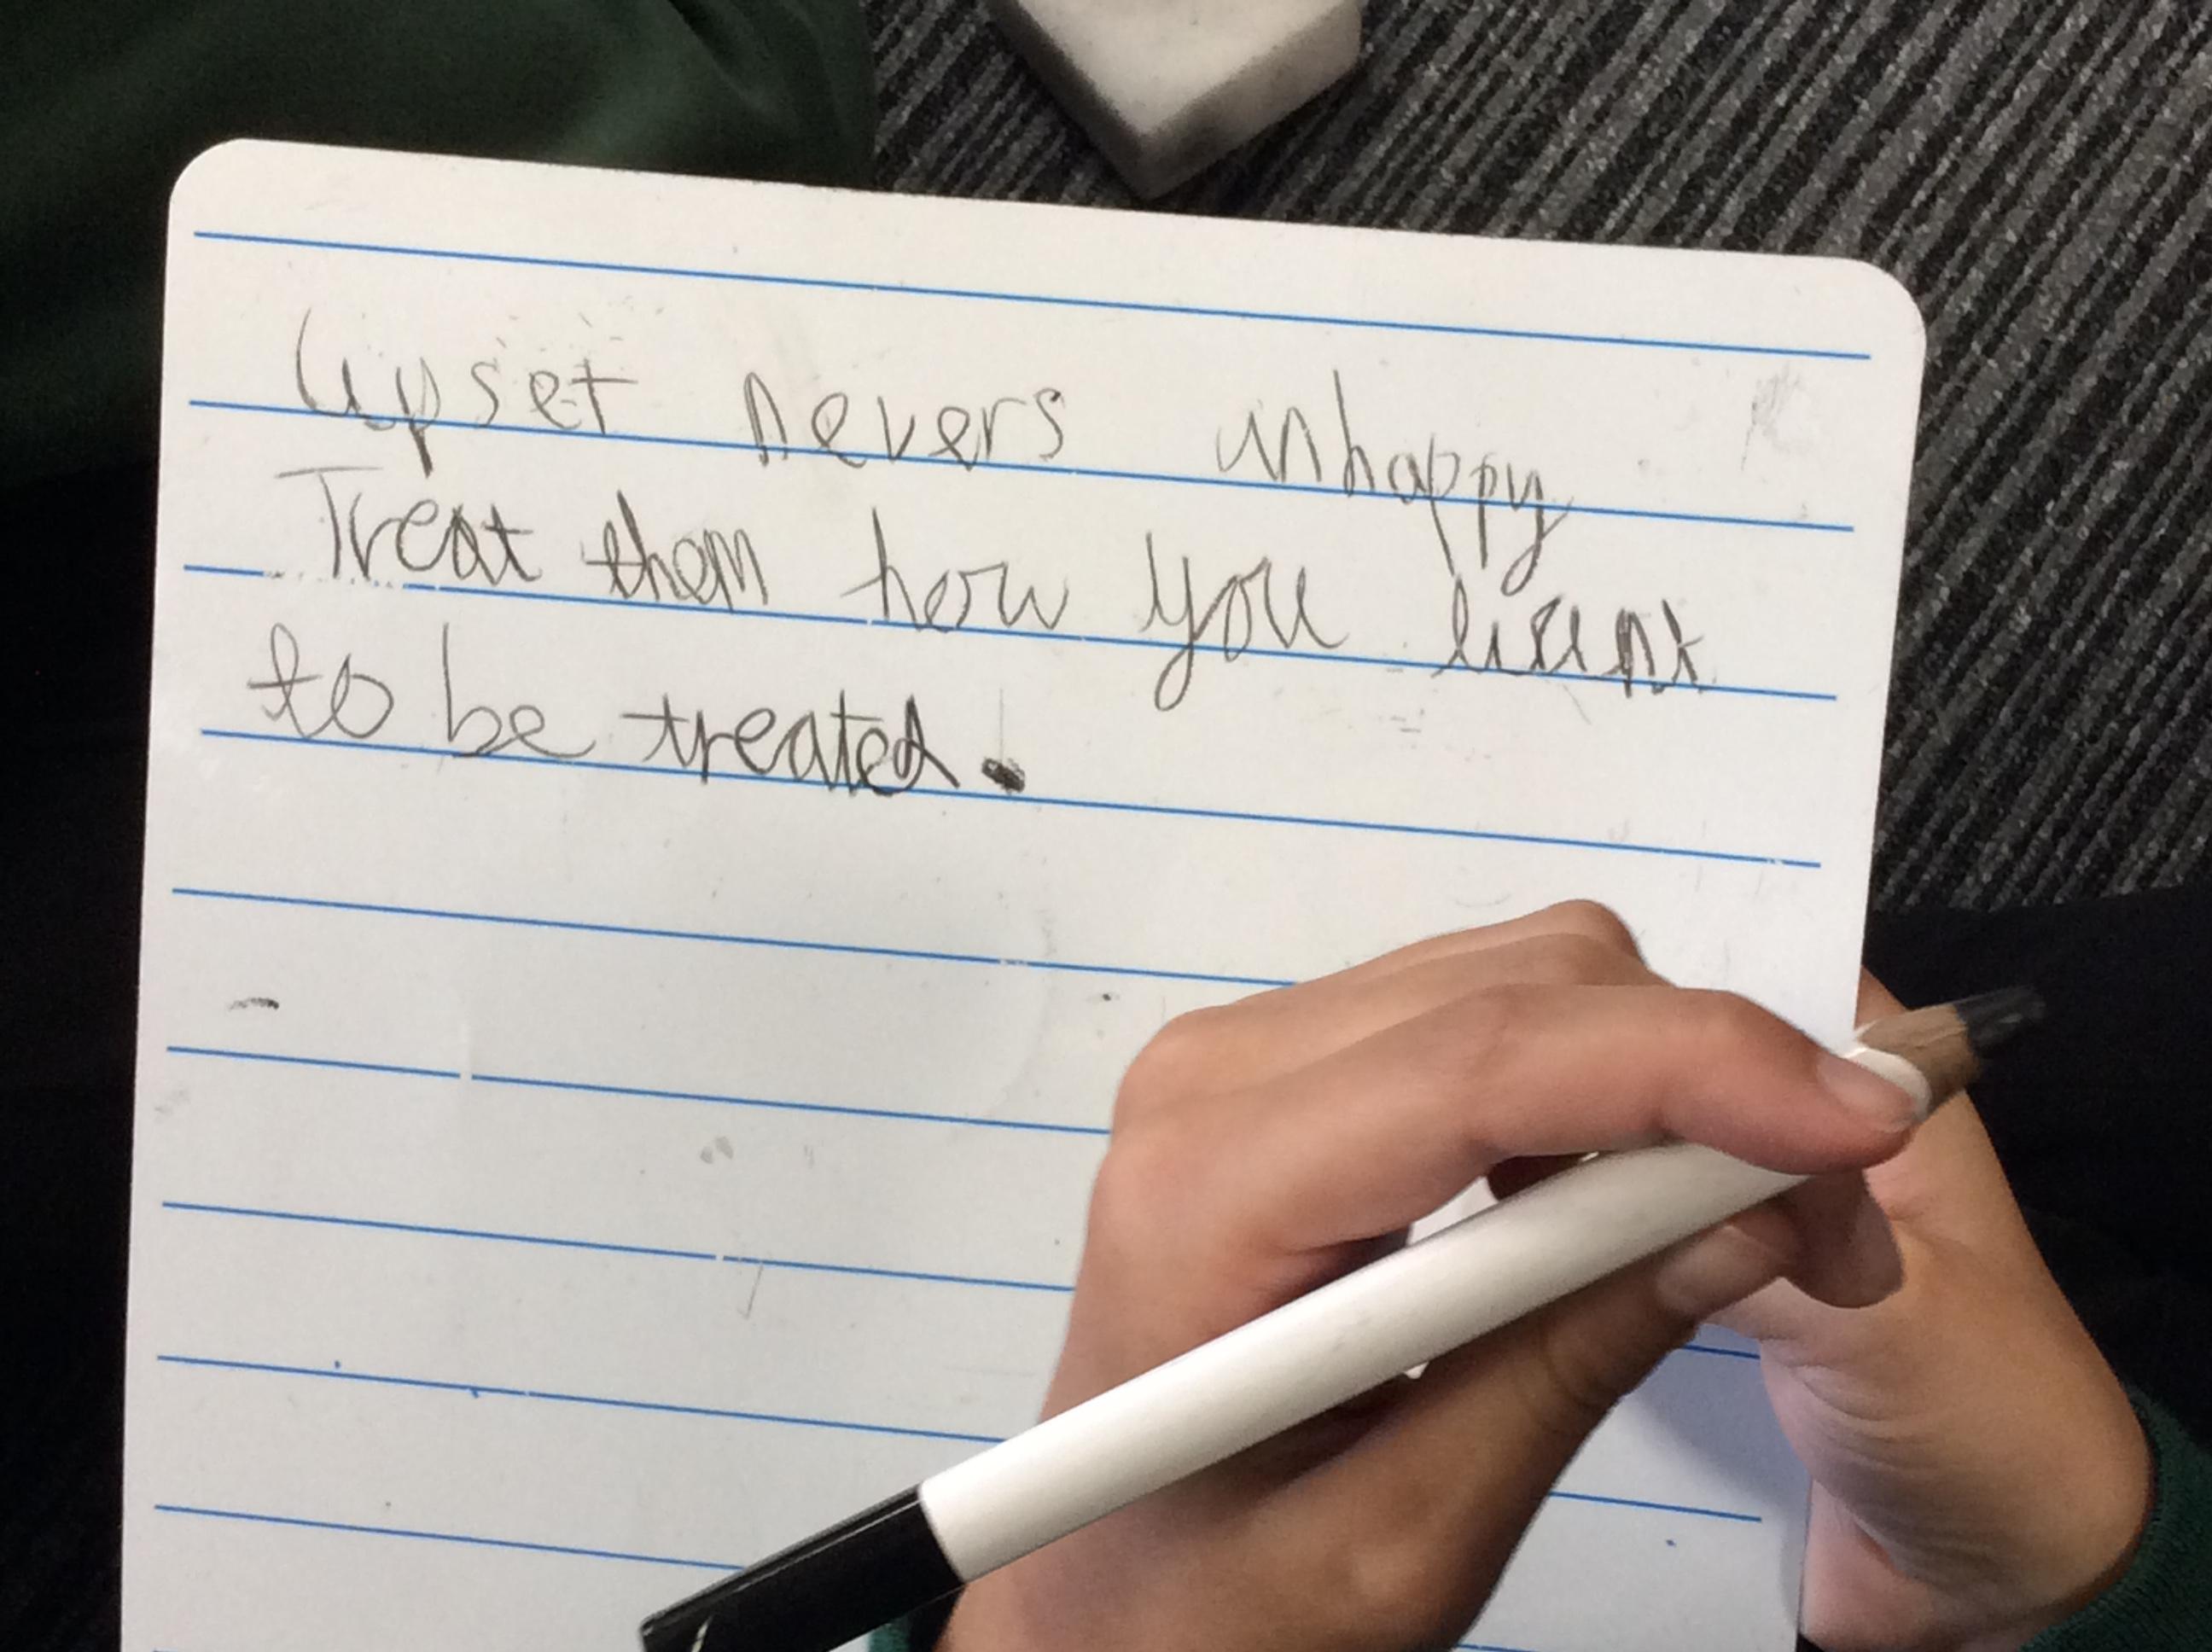 Upset nevers unhappy
Treat them how you want
to be treated.